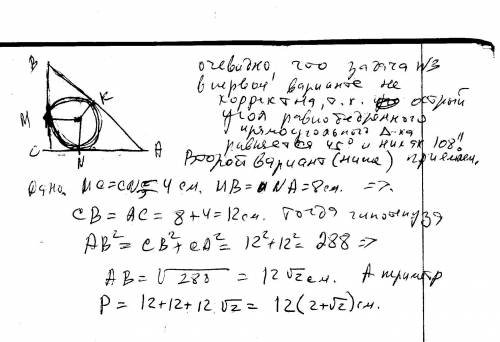 B
K
M
C
N
A
очевидно, что задача №3
в первом варианте не
корректна, т.к. острый
угол равнобедренного
прямоугольного Δ-ка
равняется 45° и никак 108°
Второй вариант (ниже) приемлем.
Дано. MC=CN=4 см. MB=NA=8см. =>
CB = AC = 8+4=12см. Тогда гипотенуза
AB²= CB²+CA²= 12²+12²= 288 =>
AB= √288 = 12√2 см. А периметр
P= 12+12+12√2= 12(2+√2)см.